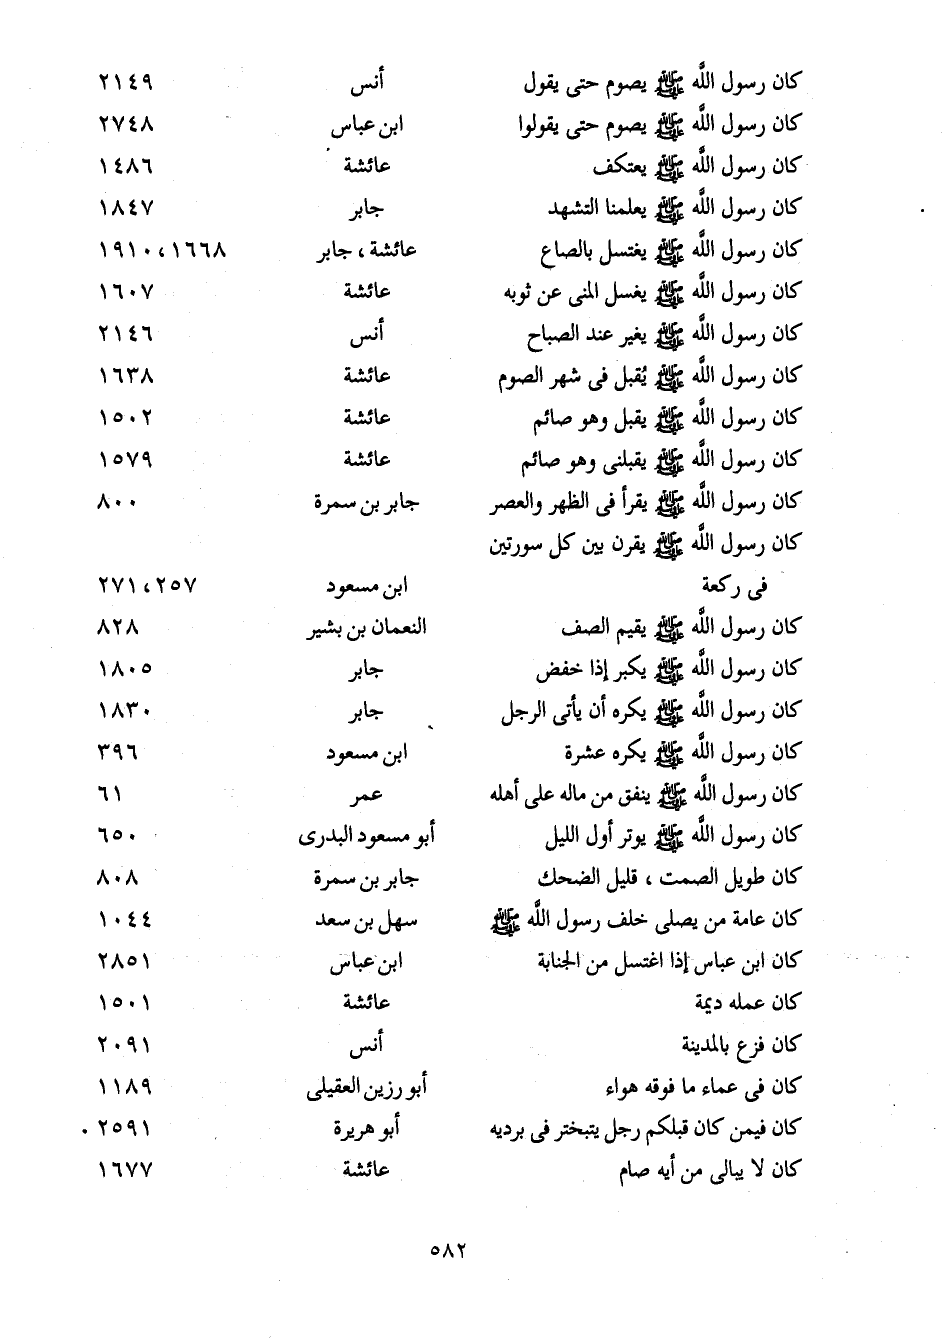 كان رسول اللَّه ﷺ يصوم حتى يقول أنس ٢١٤٩
كان رسول اللَّه ﷺ يصوم حتى يقولوا ابن عباس ٢٧٤٨
كان رسول اللَّه ﷺ يعتكف عائشة ١٤٨٦
كان رسول اللَّه ﷺ يعلمنا التشهد جابر ١٨٤٧
كان رسول اللَّه ﷺ يغتسل بالصاع عائشة ، جابر ١٦٦٨، ١٩١٠
كان رسول اللَّه ﷺ يغسل المنى عن ثوبه عائشة ١٦٠٧
كان رسول اللَّه ﷺ يغير عند الصباح أنس ٢١٤٦
كان رسول اللَّه ﷺ يُقبل فى شهر الصوم عائشة ١٦٣٨
كان رسول اللَّه ﷺ يقبل وهو صائم عائشة ١٥٠٢
كان رسول اللَّه ﷺ يقبلنى وهو صائم عائشة ١٥٧٩
كان رسول اللَّه ﷺ يقرأ فى الظهر والعصر جابر بن سمرة ٨٠٠
كان رسول اللَّه ﷺ يقرن بين كل سورتين
فى ركعة ابن مسعود ٢٥٧، ٢٧١
كان رسول اللَّه ﷺ يقيم الصف النعمان بن بشير ٨٢٨
كان رسول اللَّه ﷺ يكبر إذا خفض جابر ١٨٠٥
كان رسول اللَّه ﷺ يكره أن يأتى الرجل جابر ١٨٣٠
كان رسول اللَّه ﷺ يكره عشرة ابن مسعود ٣٩٦
كان رسول اللَّه ﷺ ينفق من ماله على أهله عمر ٦١
كان رسول اللَّه ﷺ يوتر أول الليل أبو مسعود البدرى ٦٥٠
كان طويل الصمت ، قليل الضحك جابر بن سمرة ٨٠٨
كان عامة من يصلى خلف رسول اللَّه ﷺ سهل بن سعد ١٠٤٤
كان ابن عباس إذا اغتسل من الجنابة ابن عباس ٢٨٥١
كان عمله ديمة عائشة ١٥٠١
كان فزع بالمدينة أنس ٢٠٩١
كان فى عماء ما فوقه هواء أبو رزين العقيلى ١١٨٩
كان فيمن كان قبلكم رجل يتبختر فى برديه أبو هريرة ٢٥٩١
كان لا يبالى من أيه صام عائشة ١٦٧٧
٥٨٢